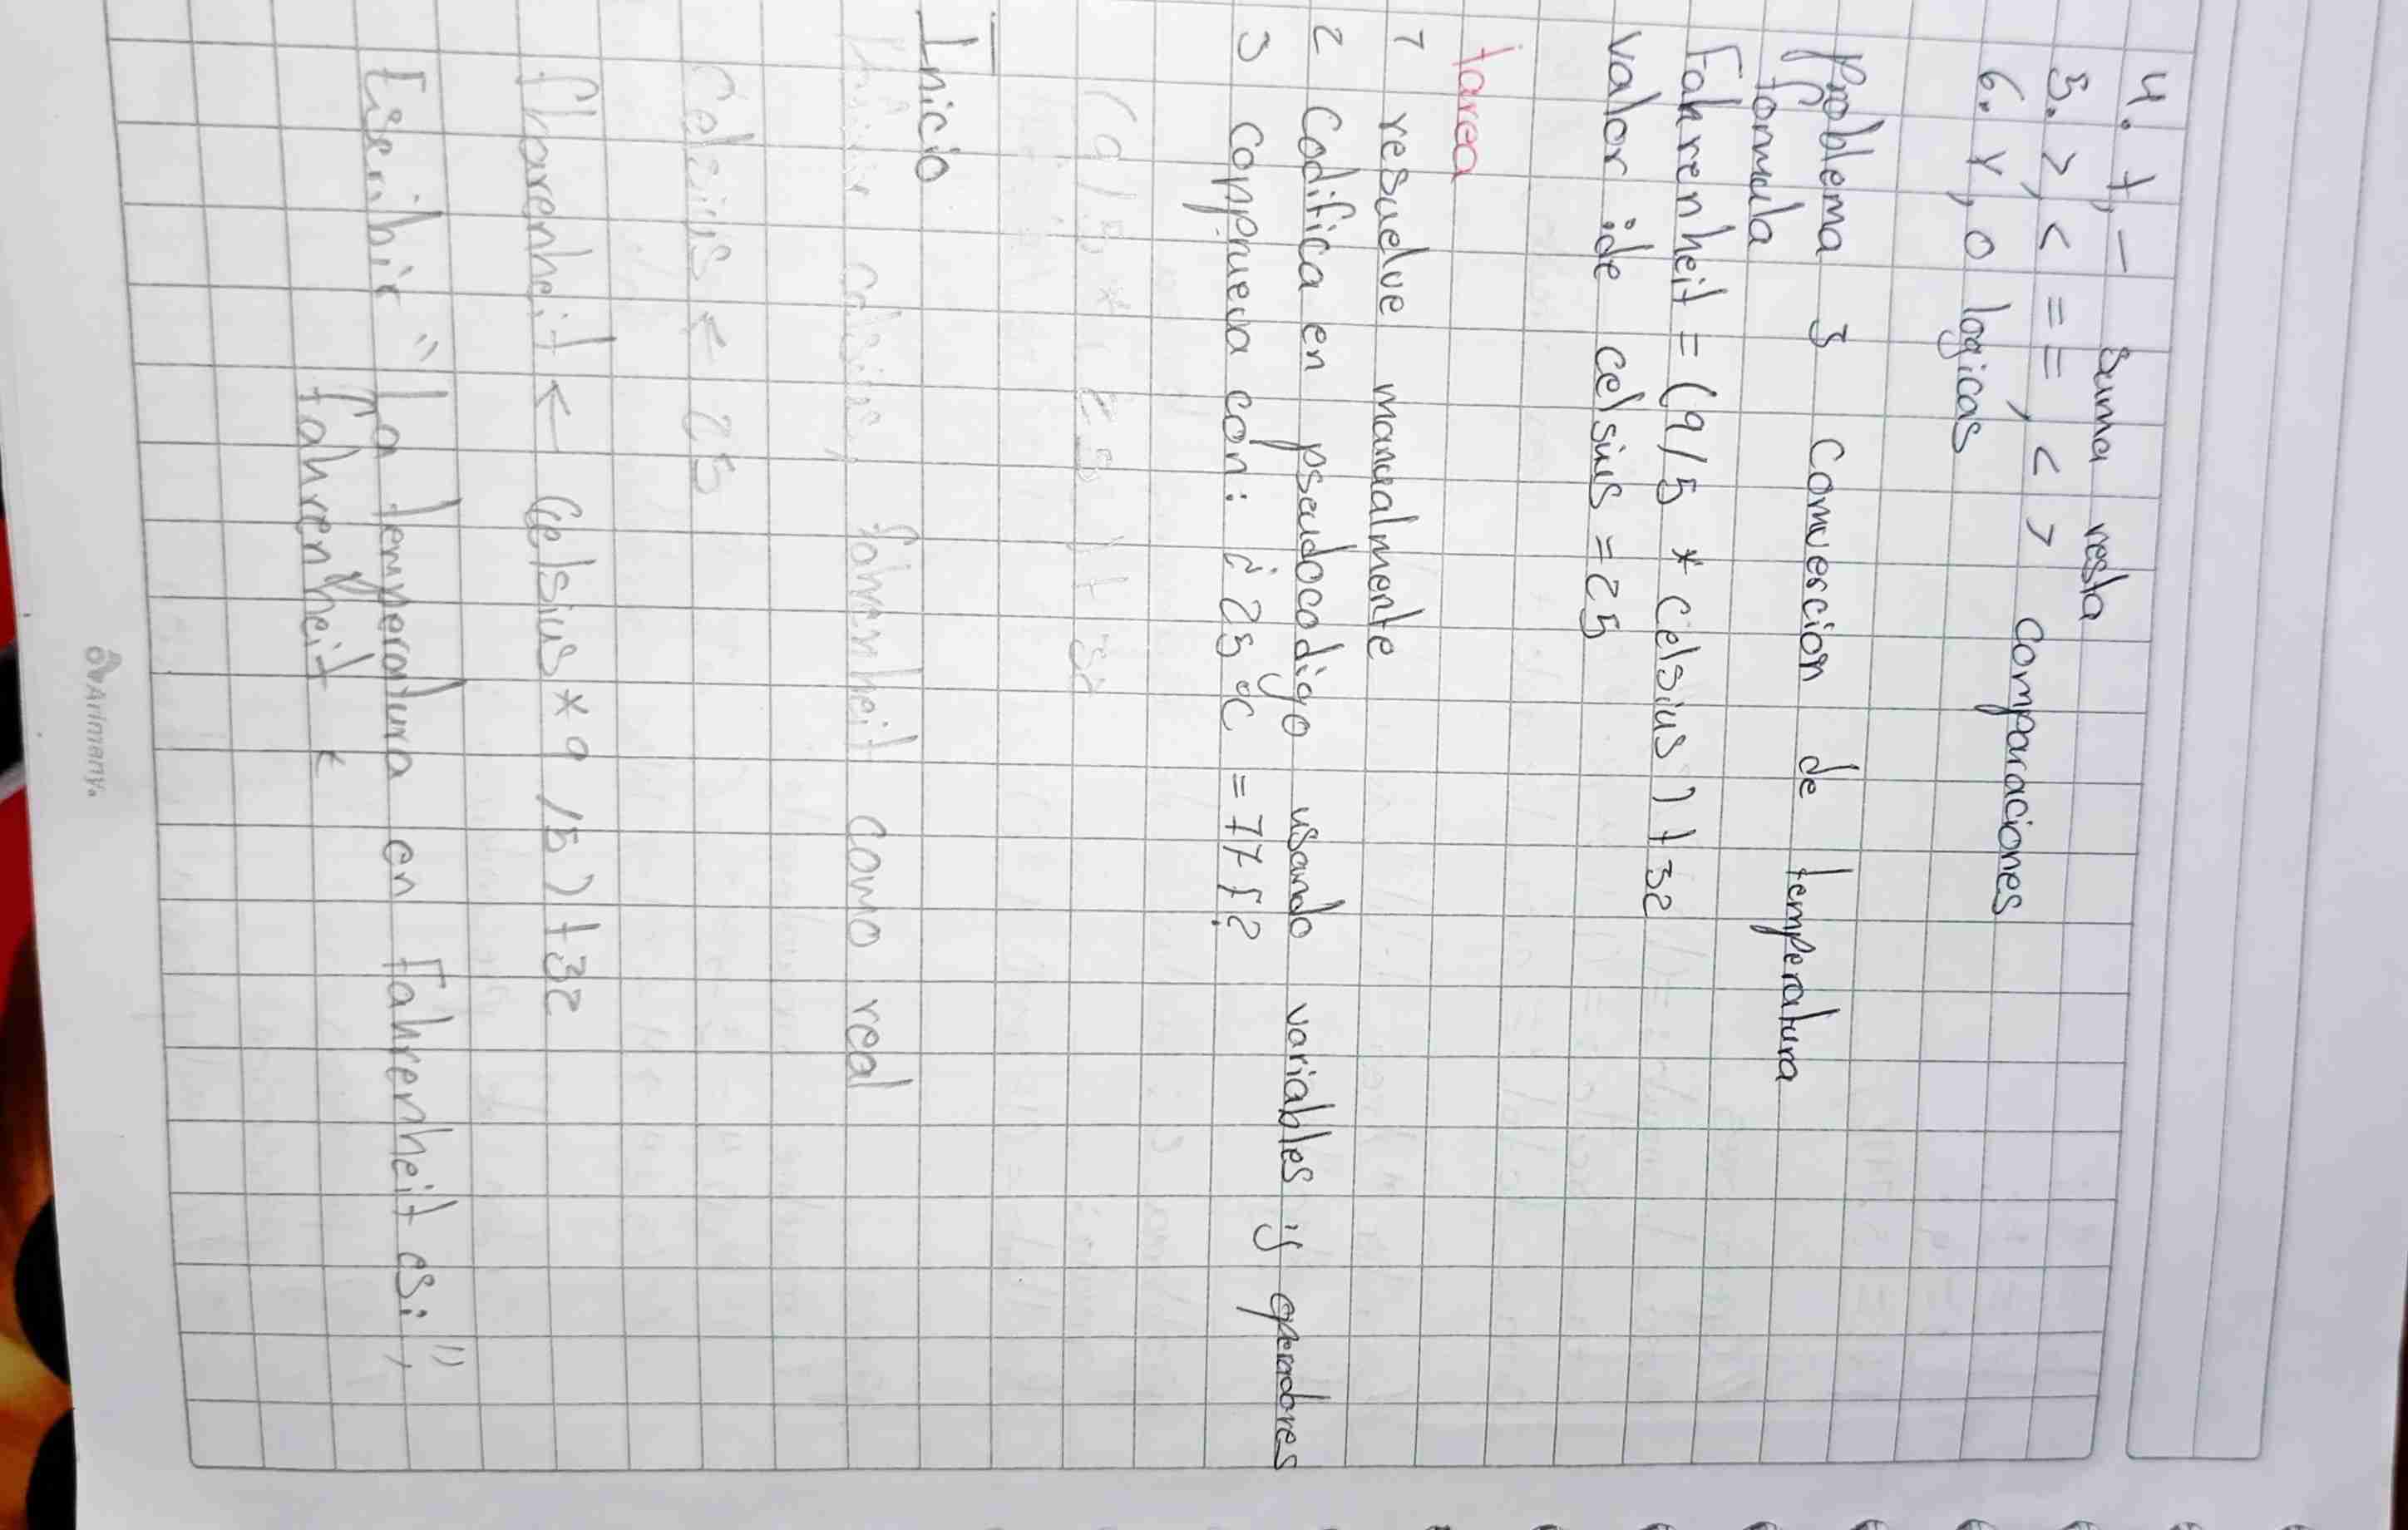 4. +, - suma resta
5. >, < = =, < > comparaciones
6. y, o logicas
Problema 3 Comvercion de temperatura
formula
Fahrenheit = (9/5 * Celsius) + 32
valor de celsius = 25
tarea
1 resuelve manualmente
2 Codifica en pseudocodigo usando variables y operadores
3 comprueva con: ¿25°C = 77 f?
(9/5 * 25) + 32
Inicio
celsius, fahrenheit como real
Celsius ← 25
fharenheit ← Celsius * 9 /5) +32
Escribir "La temperatura en Fahrenheit es:",
fahrenheit
Arimany.